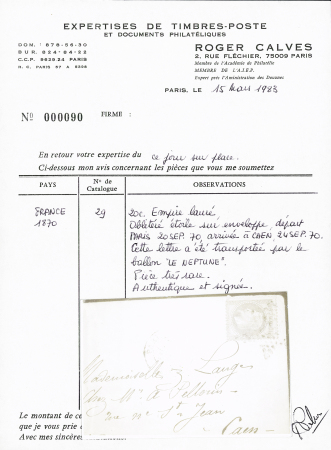 EXPERTISES DE TIMBRES-POSTE
ET DOCUMENTS PHILATÉLIQUES
DOM. : 878-56-30
BUR. : 824-84-22
C.C.P. 8629-24 PARIS
R. C. PARIS 57 A 8298
ROGER CALVES
2, RUE FLÉCHIER, 75009 PARIS
Membre de l'Académie de Philatélie
MEMBRE DE L'A.I.E.P.
Expert près l'Administration des Douanes
PARIS, LE 15 Mars 1983
No 000090 FIRME :
En retour votre expertise du ce jour sur place.
Ci-dessous mon avis concernant les pièces que vous me soumettez
PAYS No de Catalogue OBSERVATIONS
FRANCE 29 20c. Empire lauré,
1870 Oblitéré étoile sur enveloppe, départ
PARIS 20 SEP. 70, arrivée à CAEN 24 SEP. 70.
Cette lettre a été transportée par le
ballon "LE NEPTUNE".
Pièce très rare.
Authentique et signée.
Mademoiselle Z. Lauger
chez Mr. de Pellerin
rue St Jean
Caen
Le montant de ce
que je vous prie
Avec mes sincères